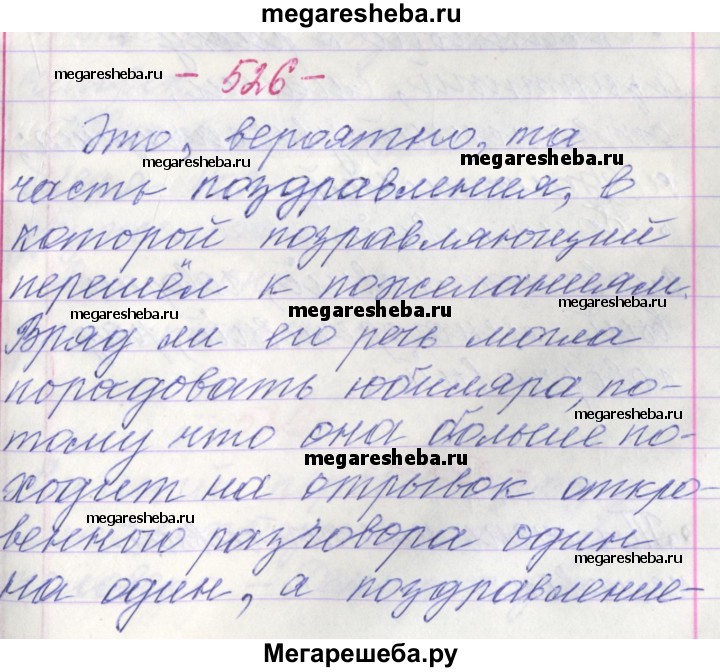 megaresheba.ru
megaresheba.ru
- 526 -
Это, вероятно, та
megaresheba.ru
megaresheba.ru
часть поздравления, в
которой позравляющий
перешёл к пожеланиям.
megaresheba.ru
megaresheba.ru
Вряд ли его речь могла
megaresheba.ru
порадовать юбиляра, по-
megaresheba.ru
тому что она больше по-
megaresheba.ru
ходит на отрывок откро-
megaresheba.ru
венного разговора один
megaresheba.ru
на один, а поздравление-
Мегарешеба.ру